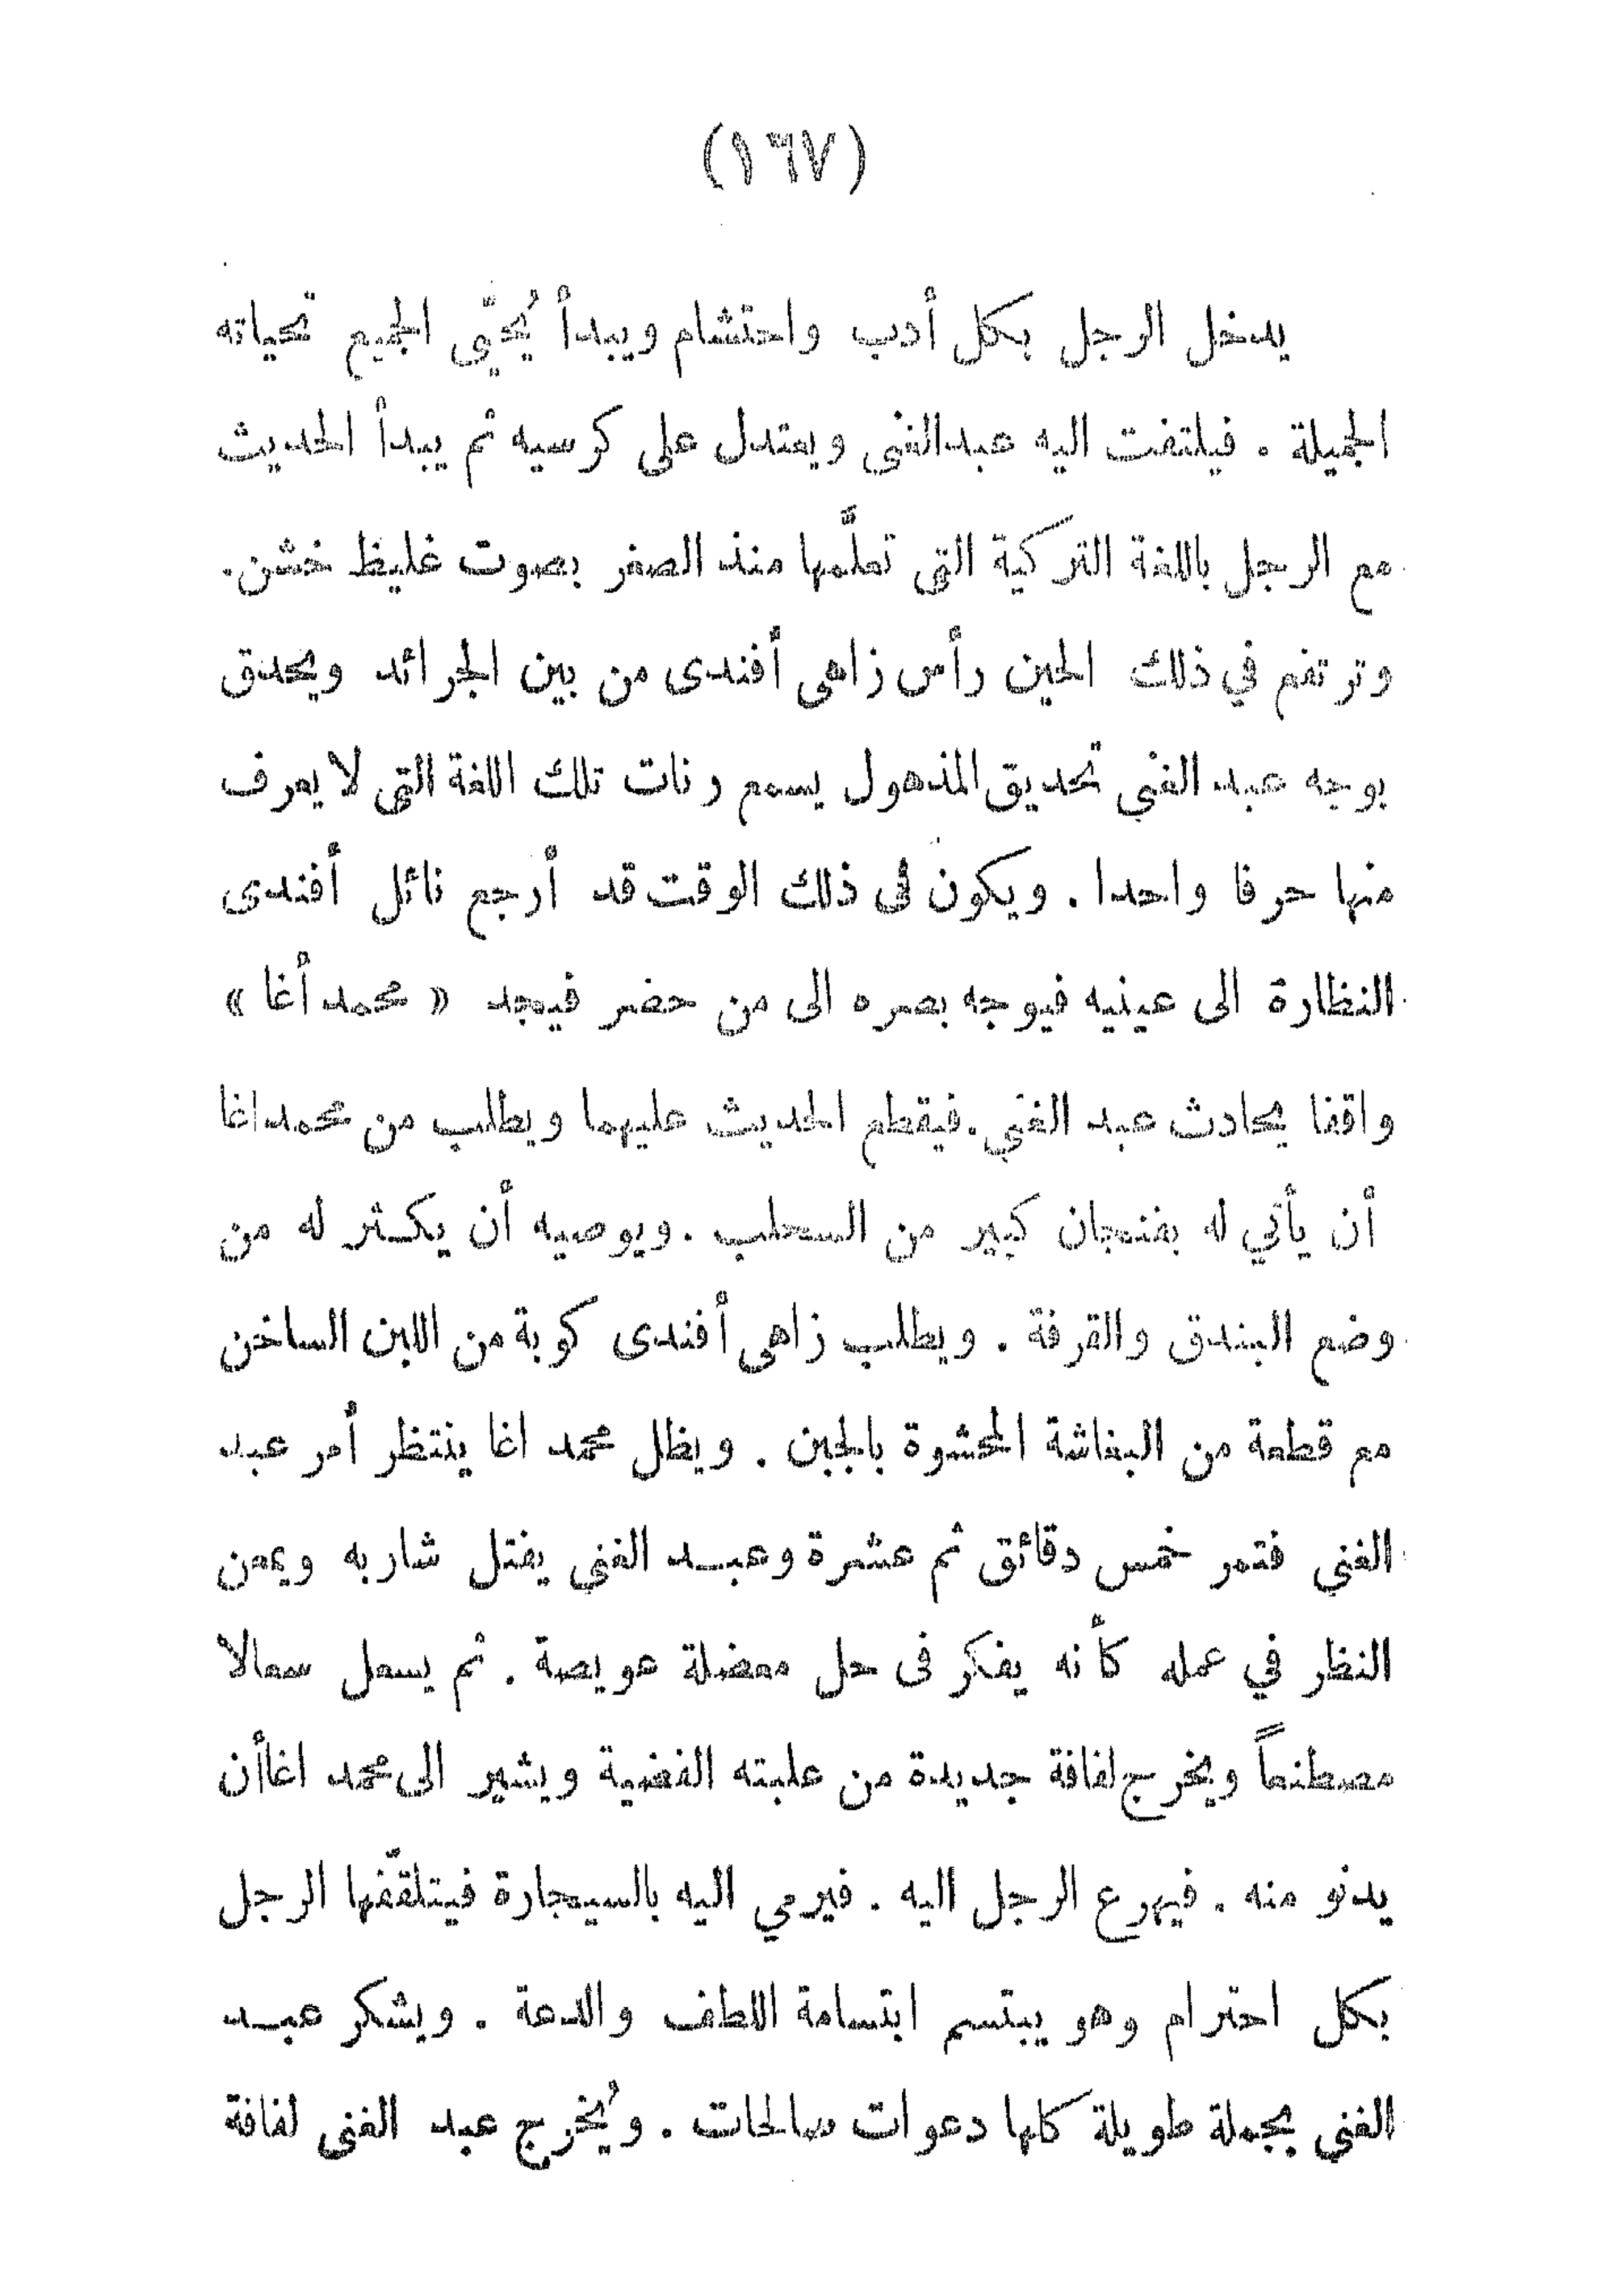 (١٦٧)
يدخل الرجل بكل أدب واحتشام ويبدأ يُحيّى الجميع تحياته
الجميلة . فيلتفت اليه عبدالغنى ويعتدل على كرسيه ثم يبدأ الحديث
مع الرجل باللغة التركية التى تعلَّمها منذ الصغر بصوت غليظ خشن.
وترتفع في ذلك الحين رأس زاهى أفندى من بين الجرائد ويحدق
بوجه عبد الغنى تحديق المذهول يسمع رنات تلك اللغة التى لا يعرف
منها حرفا واحدا . ويكون فى ذلك الوقت قد أرجع نائل أفندى
النظارة الى عينيه فيوجه بصره الى من حضر فيجد « محمد أغا »
واقفا يحادث عبد الغني . فيقطع الحديث عليهما ويطلب من محمد اغا
أن يأتي له بفنجان كبير من السحلب . ويوصيه أن يكثر له من
وضع البندق والقرفة . ويطلب زاهى أفندى كوبة من اللبن الساخن
مع قطعة من البغاشة المحشوة بالجبن . ويظل محمد اغا ينتظر أمر عبد
الغني فتمر خمس دقائق ثم عشرة وعبد الغني يفتل شاربه ويمعن
النظر في عمله كأنه يفكر فى حل معضلة عويصة . ثم يسعل سعالا
مصطنعاً ويخرج لفافة جديدة من علبته الفضية ويشير الى محمد اغا أن
يدنو منه . فيهرع الرجل اليه . فيرمي اليه بالسيجارة فيتلقّفها الرجل
بكل احترام وهو يبتسم ابتسامة اللطف والدعة . ويشكر عبد
الغني بجملة طويلة كلها دعوات صالحات . ويُخرج عبد الغنى لفافة